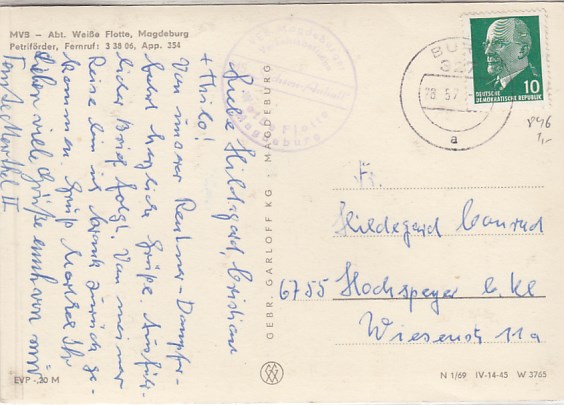 MVB – Abt. Weiße Flotte, Magdeburg
Petriförder, Fernruf: 3 38 06, App. 354
Liebe Hildegard, Christiane
+ Thilo!
Von unserer Rentner-Dampfer-
fahrt herzliche Grüße. Ausführ-
licher Brief folgt. Von meiner
Reise bin ich krank zurück ge-
kommen.
lieben viele Grüße euch von
Tante
EVP -,20 M
GEBR. GARLOFF KG MAGDEBURG
Weiße Flotte
Magdeburg
BUR
327
28 6 7
a
10
DEUTSCHE
DEMOKRATISCHE REPUBLIK
846
1,-
Fr.
Hildegard Conrad
6755 Hochspeyer b. Kl
Wiesenstr 11a
N 1/69 IV-14-45 W 3765